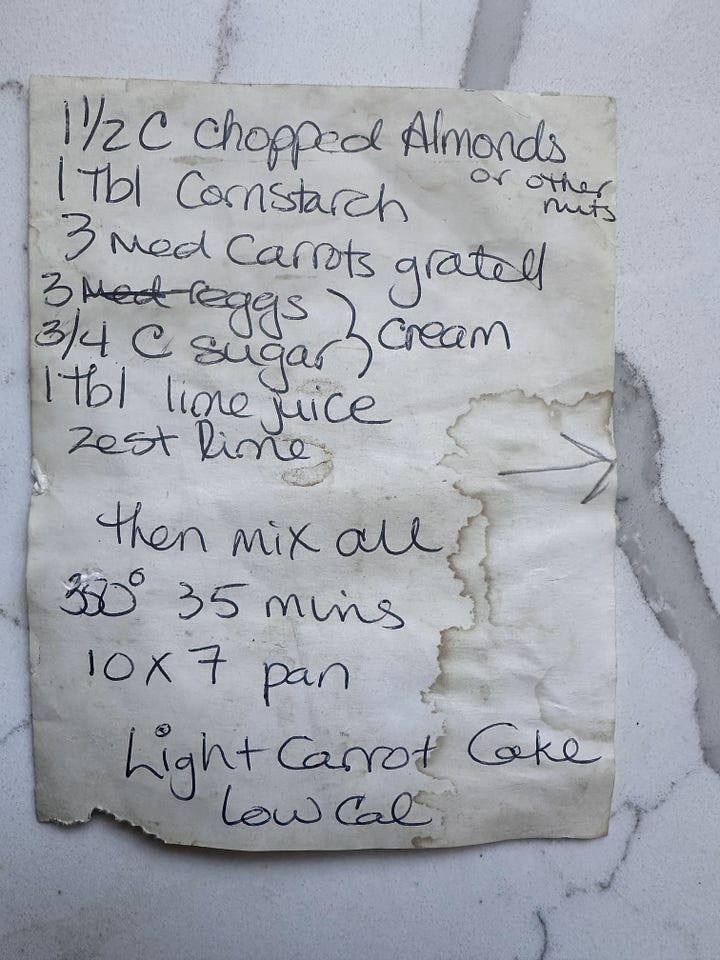 1 1/2 C chopped Almonds
or other
nuts
1 Tbl Cornstarch
3 Med Carrots grated
3 Med eggs
3/4 C sugar } Cream
1 Tbl lime juice
zest lime
then mix all
350° 35 mins
10 x 7 pan
Light Carrot Cake
Low Cal